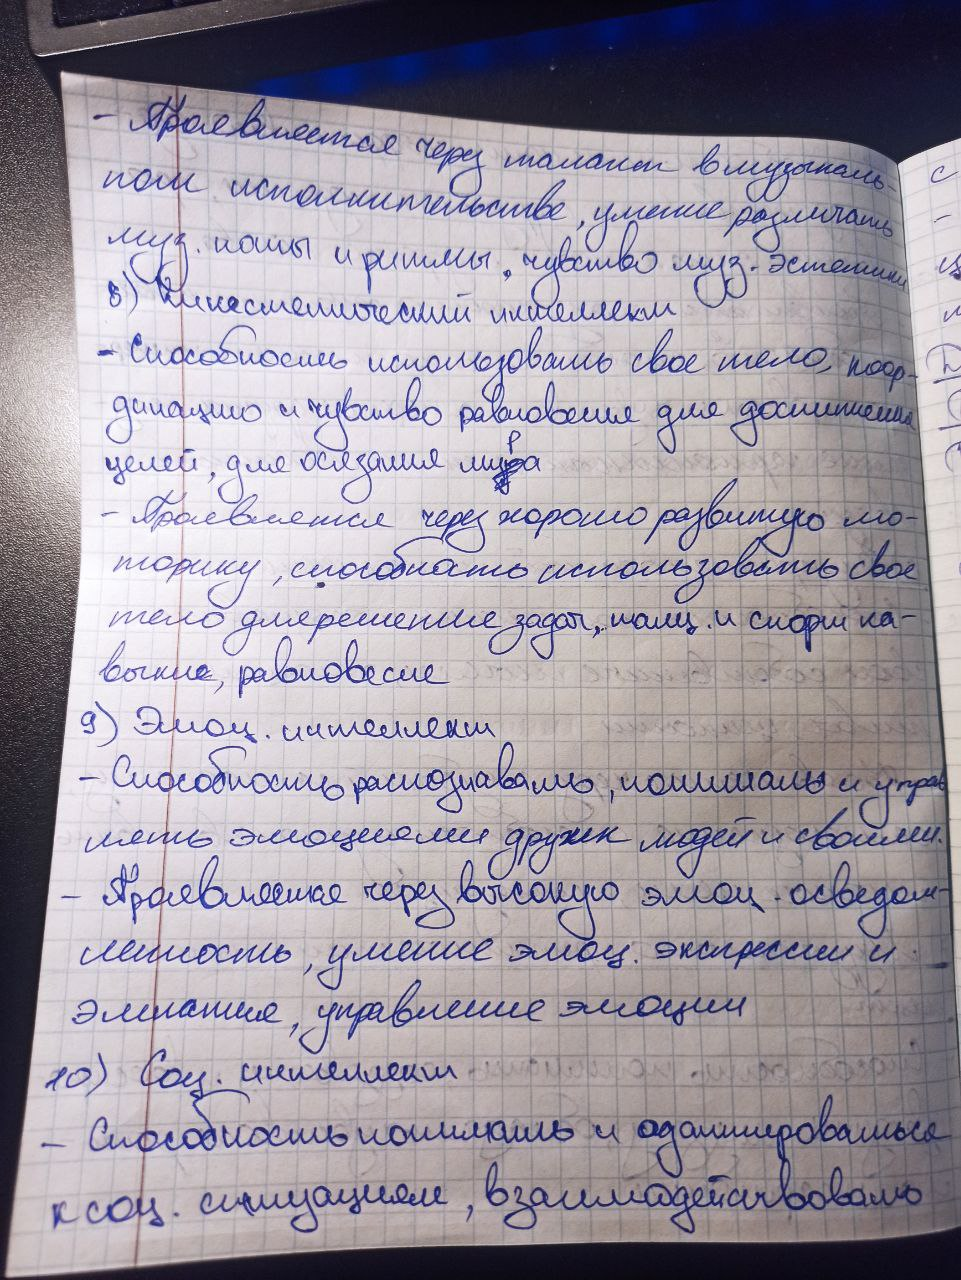 - Проявляется через талант в музыкаль-
ном исполнительстве, умение различать
муз. ноты и ритмы, чувство муз. эстетики
8) Кинестетический интеллект
- Способность использовать свое тело, коор-
динацию и чувство равновесия для достижения
целей, для осязания мира
- Проявляется через хорошо развитую мо-
торику, способность использовать свое
тело для решение задач, танц. и спорт на-
выки, равновесие
9) Эмоц. интеллект
- Способность распознавать, понимать и управ
лять эмоциями других людей и своими.
- Проявляется через высокую эмоц. осведом-
ленность, умение эмоц. экспрессии и
эмпатия, управление эмоции
10) Соц. интеллект
- Способность понимать и адаптироваться
к соц. ситуациям, взаимодействовать